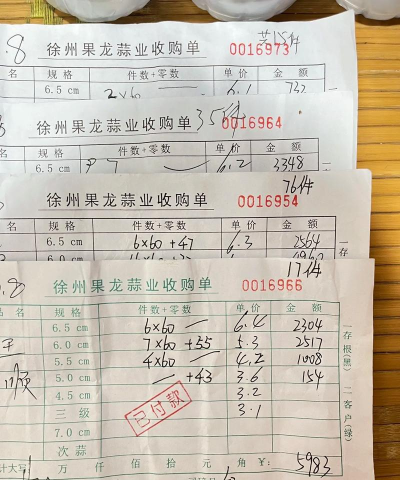 .8 徐州果龙蒜业收购单 0016973 共15件
名 规格 件数+零数 单价 金额
6.5 cm 2×60 — 6.1 732
徐州果龙蒜业收购单 0016964 35件
名 规格 件数+零数 单价 金额
6.5 cm 7 — 6.2 3348
徐州果龙蒜业收购单 0016954 76件
名 规格 件数+零数 单价 金额
6.5 cm 6×60 +47 6.3 2564
6.0 cm
徐州果龙蒜业收购单 0016966 17件
.8
品名 规格 件数+零数 单价 金额
6.5 cm 6×60 — 6.4 2304
6.0 cm 7×60 +55 5.3 2517
5.5 cm 4×60 — 4.2 1008
5.0 cm — +43 3.6 154
4.5 cm 3.2
三级 3.1
7.0 cm
次蒜
已付款
计大写 万 仟 佰 拾 元 角 ¥: 5983
一存根(黑) 二客户(绿)